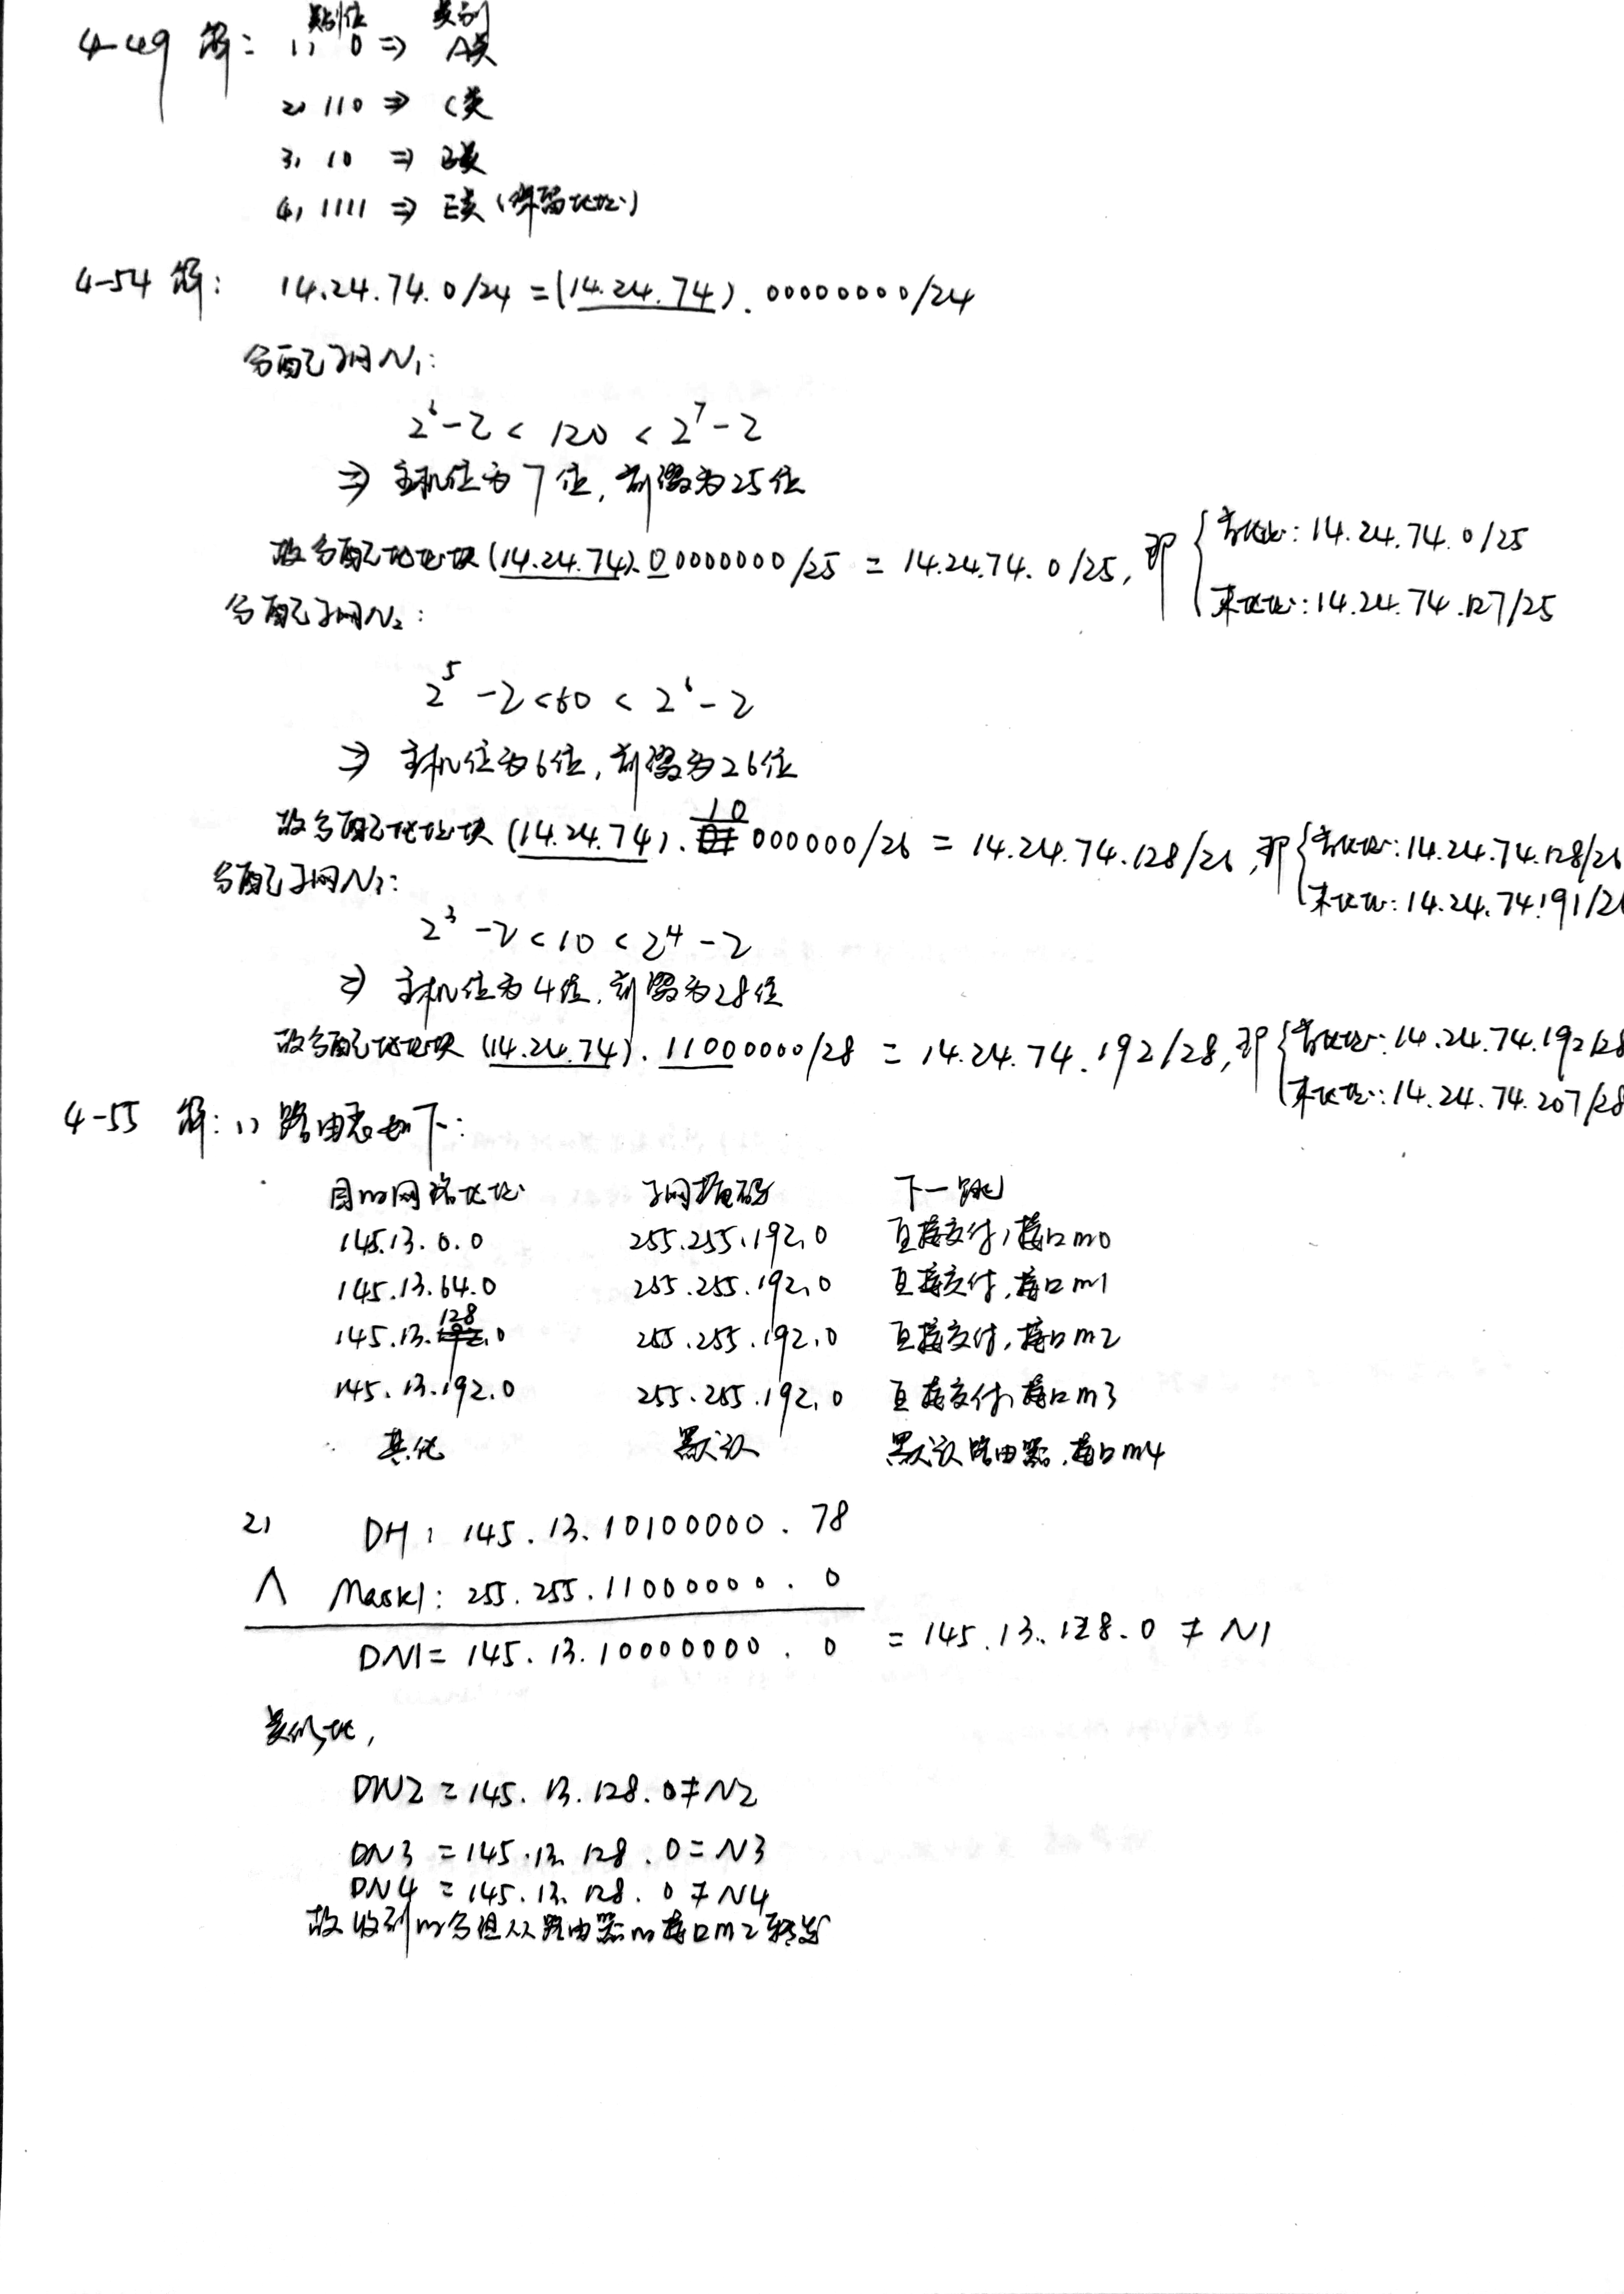 类别位 类别
4-49 解: 1) 0 ⇒ A类
2) 110 ⇒ C类
3) 10 ⇒ B类
4) 1111 ⇒ E类(保留地址)
4-54 解: 14.24.74.0/24 = (14.24.74).00000000/24
分配子网N₁:
2⁶-2 < 120 < 2⁷-2
⇒ 主机位为7位,前缀为25位
故分配地址块(14.24.74).00000000/25 = 14.24.74.0/25, 即 { 首地址: 14.24.74.0/25
末地址: 14.24.74.127/25
分配子网N₂:
2⁵-2 < 60 < 2⁶-2
⇒ 主机位为6位,前缀为26位
故分配地址块(14.24.74).10000000/26 = 14.24.74.128/26, 即 { 首地址: 14.24.74.128/26
末地址: 14.24.74.191/26
分配子网N₃:
2³-2 < 10 < 2⁴-2
⇒ 主机位为4位,前缀为28位
故分配地址块(14.24.74).11000000/28 = 14.24.74.192/28, 即 { 首地址: 14.24.74.192/28
末地址: 14.24.74.207/28
4-55 解: 1) 路由表如下:
目的网络地址 子网掩码 下一跳
145.13.0.0 255.255.192.0 直接交付,接口m0
145.13.64.0 255.255.192.0 直接交付,接口m1
145.13.128.0 255.255.192.0 直接交付,接口m2
145.13.192.0 255.255.192.0 直接交付,接口m3
其他 默认 默认路由器,接口m4
2) DH: 145.13.10100000.78
∧ Mask1: 255.255.11000000.0
DN1 = 145.13.10000000.0 = 145.13.128.0 ≠ N1
类似地,
DN2 = 145.13.128.0 ≠ N2
DN3 = 145.13.128.0 = N3
DN4 = 145.13.128.0 ≠ N4
故收到的分组从路由器的接口m2转发